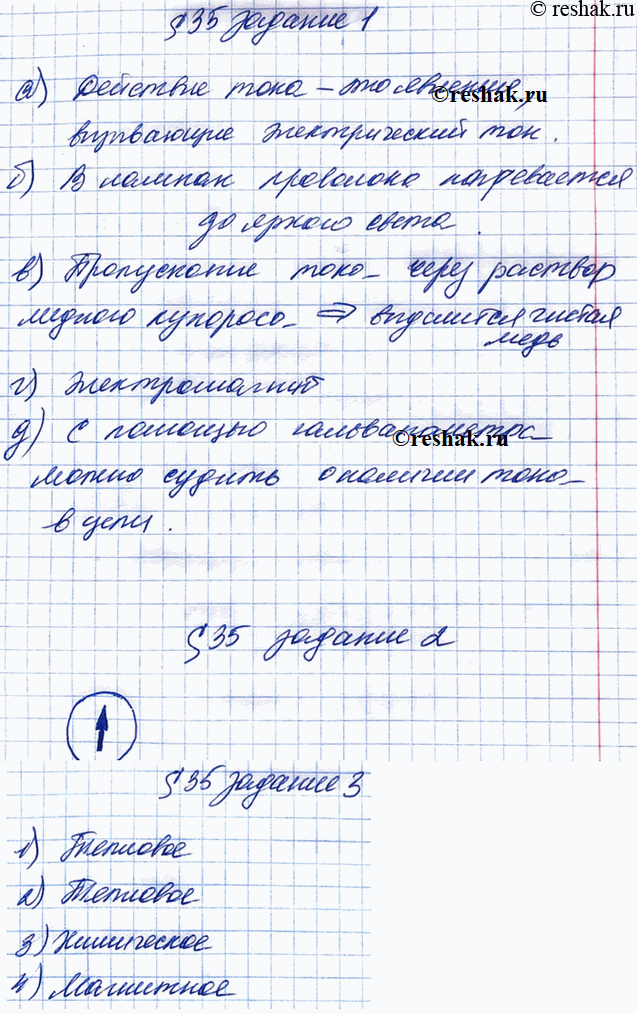 © reshak.ru
§35 задание 1
а) Действие тока – это явление,
© reshak.ru
вызывающие электрический ток.
б) В лампах проволока нагревается
до яркого света.
в) Пропускание тока через раствор
медного купороса ⇒ выделится чистая
медь
г) Электромагнит
д) С помощью гальванометра
© reshak.ru
можно судить о наличии тока
в цепи.
§35 задание 2
§35 задание 3
1) Тепловое
2) Тепловое
3) Химическое
4) Магнитное